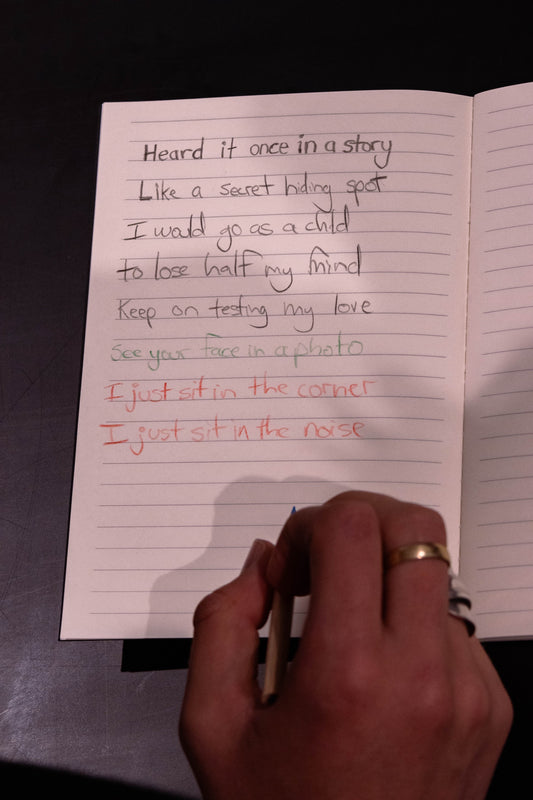 Heard it once in a story
Like a secret hiding spot
I would go as a child
to lose half my mind
Keep on testing my love
See your face in a photo
I just sit in the corner
I just sit in the noise